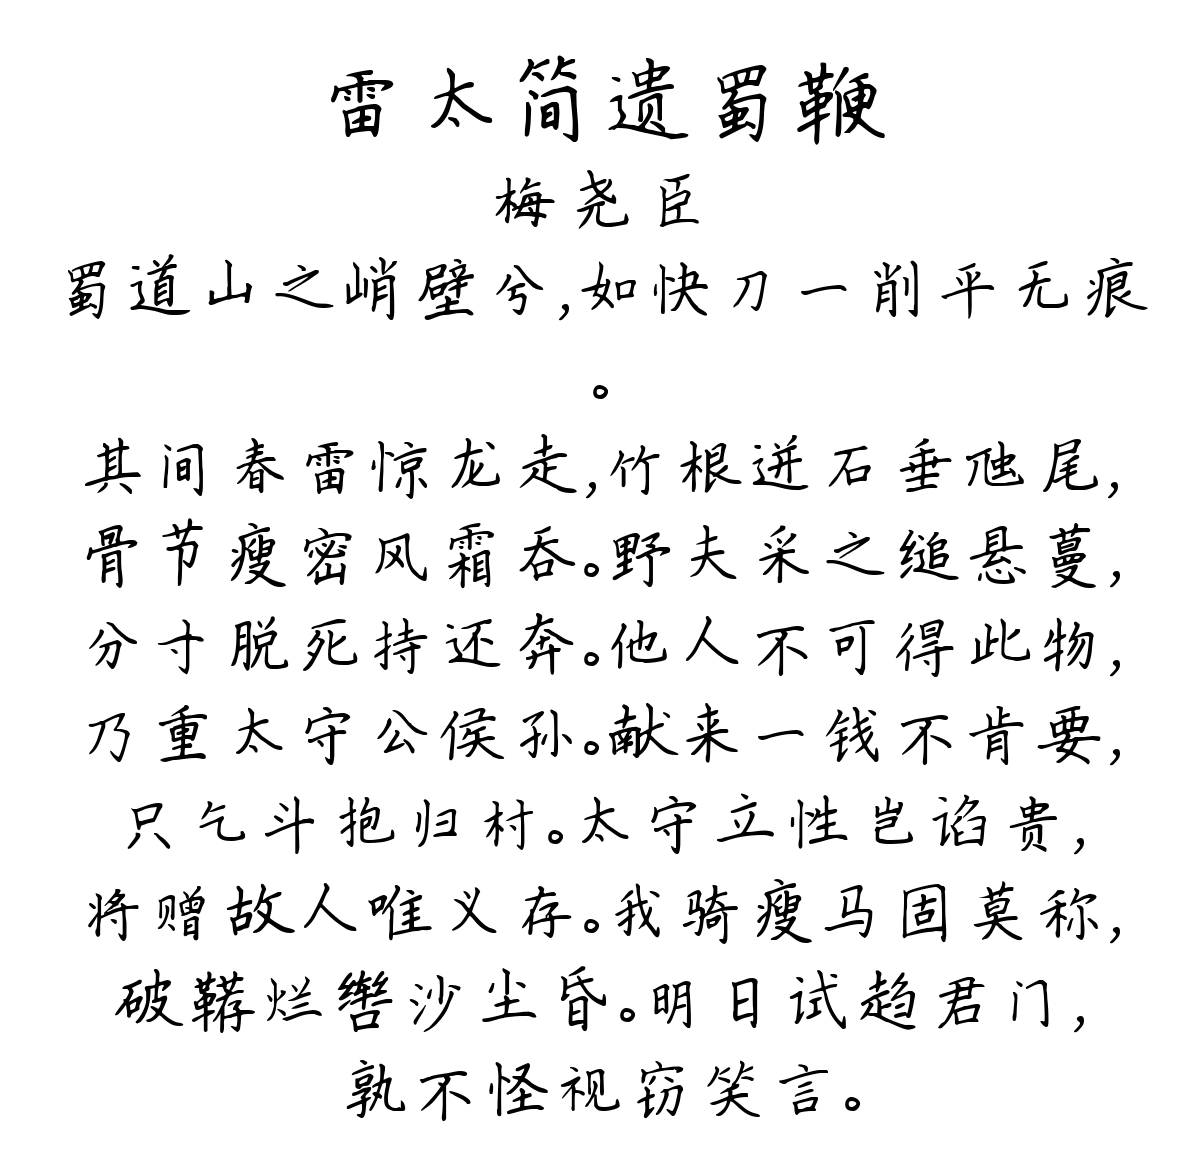 雷太简遗蜀鞭
梅尧臣
蜀道山之峭壁兮,如快刀一削平无痕
。
其间春雷惊龙走,竹根迸石垂虺尾,
骨节瘦密风霜吞。野夫采之缒悬蔓,
分寸脱死持还奔。他人不可得此物,
乃重太守公侯孙。献来一钱不肯要,
只乞斗抱归村。太守立性岂谄贵,
将赠故人唯义存。我骑瘦马固莫称,
破鞯烂辔沙尘昏。明日试趋君门,
孰不怪视窃笑言。